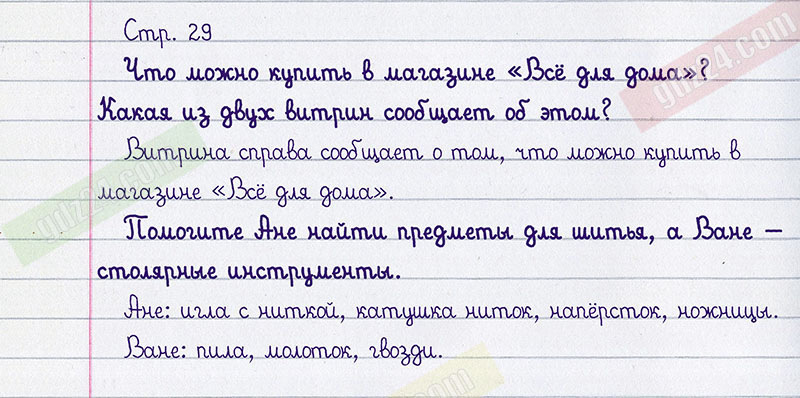 Стр. 29
Что можно купить в магазине «Всё для дома»?
Какая из двух витрин сообщает об этом?
Витрина справа сообщает о том, что можно купить в
магазине «Всё для дома».
Помогите Ане найти предметы для шитья, а Ване –
столярные инструменты.
Ане: игла с ниткой, катушка ниток, напёрсток, ножницы.
Ване: пила, молоток, гвозди.
gdz24.com
gdz24.com
.com